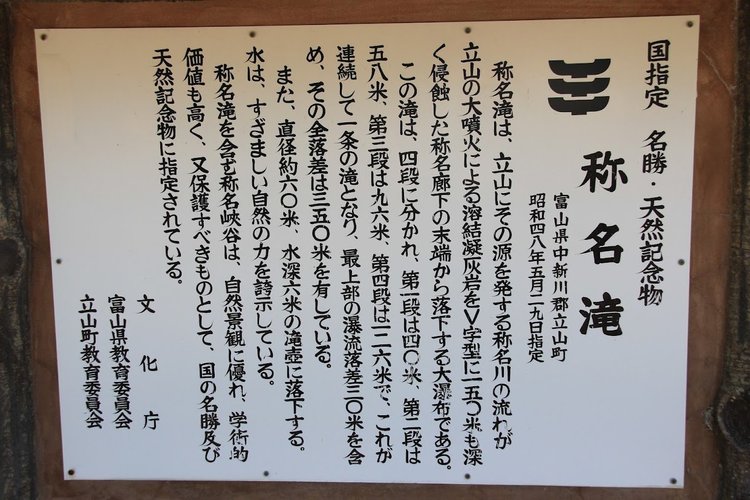 国指定　名勝・天然記念物
称名滝
富山県中新川郡立山町
昭和四八年五月二九日指定
称名滝は、立山にその源を発する称名川の流れが
立山の大噴火による溶結凝灰岩をV字型に一五〇米も深
く侵蝕した称名廊下の末端から落下する大瀑布である。
この滝は、四段に分かれ、第一段は四〇米、第二段は
五八米、第三段は九六米、第四段は一二六米で、これが
連続して一条の滝となり、最上部の瀑流落差三〇米を含
め、その全落差は三五〇米を有している。
また、直径約六〇米、水深六米の滝壺に落下する。
水は、すざましい自然の力を誇示している。
称名滝を含む称名峡谷は、自然景観に優れ、学術的
価値も高く、又保護すべきものとして、国の名勝及び
天然記念物に指定されている。
文化庁
富山県教育委員会
立山町教育委員会